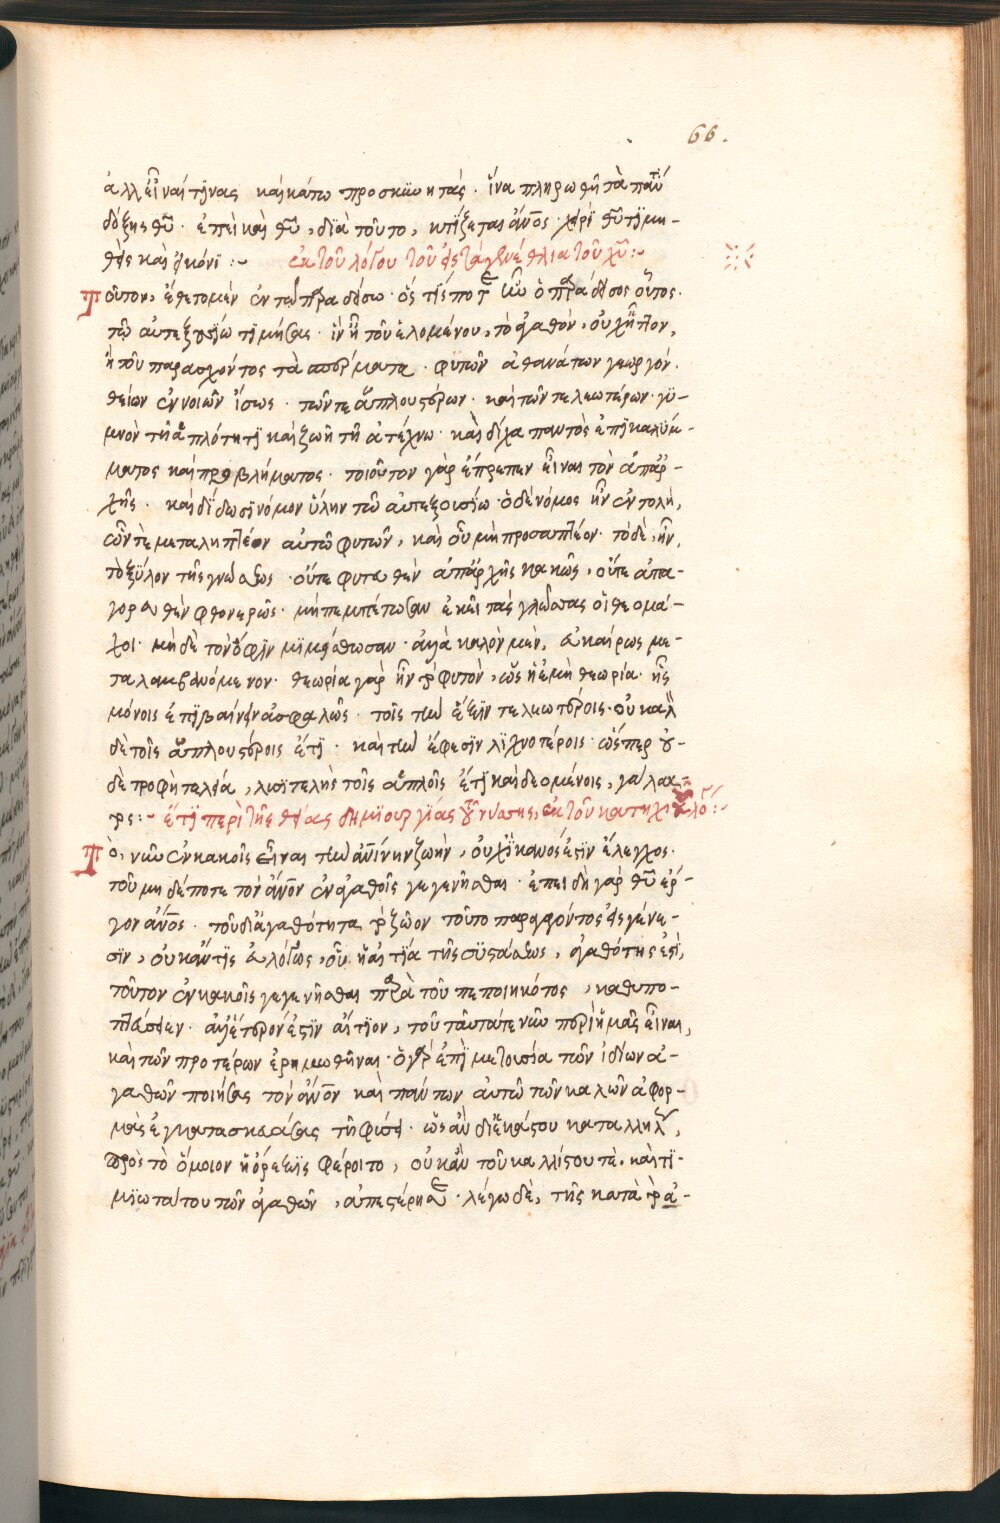 66.
ἀλλ εἶναί τϊνας καὶ κάτω προσκϋνητάς · ἵνα πληρωθῆ τὰ πάν
δόξης θῦ · ἐπεὶ καὶ θῦ, δϊὰ τοῦτο, κτΐζεται ἄνος χερὶ θῦ τϊμη-
θεὶς καὶ εἰκόνϊ :~ ἐκ τοῦ λόγου τοῦ εἰς τὰ γενέθλια τοῦ χῦ :~
Τοῦτον, ἔθετο μὲν ἐν τῶ πρα δείσω · ὅς τίς ποτ ἦν ὁ πρα άδεισος οὗτος ·
τῶ αὐτεξουσίω τϊμήσας · ἵν ἦ τοῦ ἑλομένου, τὸ ἀγαθὸν, οὐχ ἧττον,
ἢ τοῦ παρασχόντος τὰ σπέρματα · φυτῶν ἀθανάτων γεωργόν ·
θείων ἐννοιῶν ἴσως · τῶν τε ἁπλουστέρων · καὶ τῶν τελεωτέρων · γϋ-
μνὸν τῆ ἁπλότητϊ καὶ ζωῆ τῆ ἀτέχνω · καὶ δίχα παντὸς ἐπϊκαλύμ-
ματος καὶ προβλήματος · τοιοῦτον γὰρ ἔπρεπεν εἶναι τὸν ἀπαρ-
χῆς · καὶ δίδωσϊ νόμον ὕλην τῶ αὐτεξουσίω · ὁ δὲ νόμος ἦν ἐντολὴ,
ὧν τὲ μεταληπτέον αὐτῶ φυτῶν, καὶ οὗ μὴ προσαπτέον · τὸ δὲ, ἦν,
τὸ ξϋλον τῆς γνώσεως · οὔτε φυτευθὲν ἀπαρχῆς κακῶς, οὔτε ἀπα-
γορευθὲν φθονερῶς · μὴ πεμπέτωσαν ἐκεῖ τὰς γλώσσας οἱ θεομά-
χοι · μὴ δὲ τὸν ὄφϊν μϊμείσθωσαν · ἀλλὰ καλὸν μὲν, εὐκαίρως με-
ταλαμβανόμενον · θεωρία γὰρ ἦν τὸ φυτὸν, ὡς ἡ ἐμὴ θεωρία · ἧς
μόνοις ἐπϊβαίνειν ἀσφαλῶς · τοῖς τὴν ἕξϊν τελεωτέροις · οὐ καλ
δὲ τοῖς ἁπλουστέροις ἔτϊ · καὶ τὴν ἔφεσϊν λϊχνοτέροις · ὥσπερ οὐ-
δὲ τροφὴ τελεία, λυσϊτελὴς τοῖς ἁπαλοῖς ἔτϊ καὶ δεομένοις, γάλακ-
τος :~ ἔτϊ περὶ τῆς θείας δημϊουργίας γρ νύσσης, ἐκ τοῦ κατηχι λό :~
Τὸ, νῦν ἐν κακοῖς εἶναι τὴν ἀνίνην ζωὴν, οὐχ ἱκανός ἐστϊν ἔλεγχος ·
τοῦ μηδέποτε τὸν ἄνον ἐν ἀγαθοῖς γεγενῆσθαι · ἐπειδὴ γὰρ θῦ ἔρ-
γον ἄνος · τοῦ δι ἀγαθότητα τὸ ζῶον τοῦτο παραγαγόντος εἰς γένε-
σϊν, οὐκ ἄν τϊς εὐλόγως, οὗ ἡ αἰτϊα τῆς συϊστάσεως, ἀγαθότης ἐστὶ,
τοῦτον ἐν κακοῖς γεγενῆσθαι παρὰ τοῦ πεποιηκότος, καθυπο-
πτεύσειεν · ἀλλ ἕτερόν ἐστϊν αἴτϊον, τοῦ ταῦτά τε νῦν περὶ ἡμᾶς εἶναι,
καὶ τῶν προτέρων ἐρημωθῆναι · ὁ γὰρ ἐπὶ μετουσία τῶν ἰδίων ἀ-
γαθῶν ποιήσας τὸν ἄνον καὶ πάντων αὐτῶ τῶν καλῶν ἀφορ-
μὰς ἐγκατασκευάσας τῆ φύσει · ὡς ἂν δι ἑκάστου καταλλήλ,
πρὸς τὸ ὅμοιον ἡ ὄρεξϊς φέροιτο, οὐκ ἂν τοῦ καλλίστου τὲ · καὶ τϊ-
μϊωτάτου τῶν ἀγαθῶν, ἀπεστέρησε · λέγω δὲ, τῆς κατὰ τὸ ἀ-